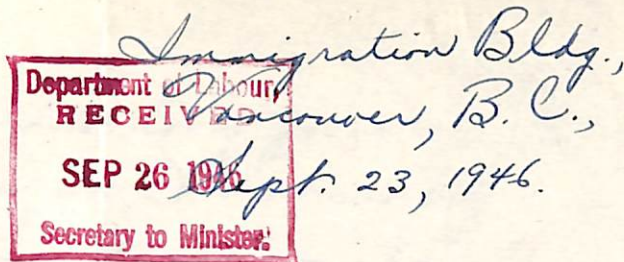 Immigration Bldg.,
Vancouver, B. C.,
Sept. 23, 1946.
Department of Labour
RECEIVED
SEP 26 1946
Secretary to Minister